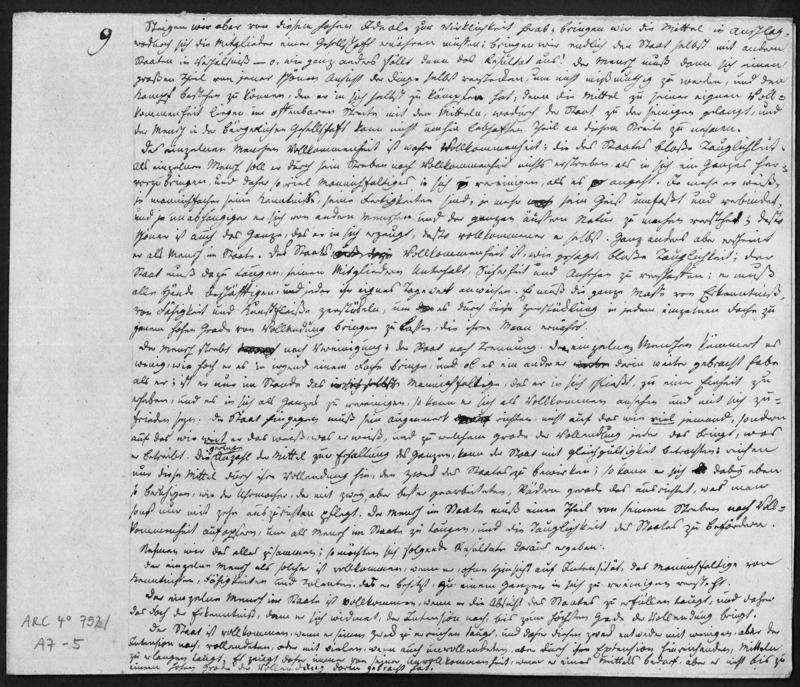 9
Steigen wir aber von diesem hohen Ideale zur Wirklichkeit herab; bringen wir die Mittel in Anschlag,
wodurch sich die Mitglieder einer Gesellschaft ernähren müssen; bringen wir endlich den Staat selbst mit andern
Staaten in Verhältniß — o, wie ganz anders fällt dann das Resultat aus! Der Mensch muß dann sich einen
großen Theil von jener schönen Ansicht der Dinge selbst verstecken, um nicht mißmuthig zu werden, und den
Kampf bestehen zu können, den er in sich selbst zu kämpfen hat; denn die Mittel zu seiner eignen Voll=
kommenheit liegen im offenbaren Streite mit den Mitteln, wodurch der Staat zu der seinigen gelangt, und
der Mensch in der bürgerlichen Gesellschaft kann nicht umhin lebhaften Theil an diesem Streite zu nehmen.
Des einzelnen Menschen Vollkommenheit ist wahre Vollkommenheit; die des Staates bloße Tauglichkeit.
Als einzelner Mensch soll er durch sein Streben nach Vollkommenheit nichts erstreben, als in sich ein Ganzes her=
vorzubringen, und daher so viel Mannichfaltiges in sich zu vereinigen, als es angeht. Je mehr er weiß,
je mannichfacher seine Kenntniß, seine Fertigkeiten sind, je mehr sein Geist umfaßt und verbindet,
und je unabhängiger er sich von andern Menschen und der ganzen äußern Natur zu machen versteht; desto
schöner ist auch das Ganze, das er in sich erzeugt, desto vollkommener er selbst. Ganz anders aber erscheint
er als Mensch im Staate. Des Staats Vollkommenheit ist, wie gesagt, bloße Tauglichkeit; der
Staat muß dazu taugen, seinen Mitgliedern Unterhalt, Sicherheit und Ansehen zu verschaffen; er muß
alle Hände beschäftigen, und jeder ihr eignes Tagewerk anweisen. Er muß die ganze Masse von Erkenntniß,
von Fähigkeit und Kunstfleiße zerstückeln, um es durch diese Zerstücklung in jedem einzelnen Fache zu
jenem hohen Grade von Vollendung bringen zu lassen, die ihren Mann ernährt.
Der Mensch strebt nach Vereinigung; der Staat nach Trennung. Den einzelnen Menschen kümmert es
wenig, wie hoch er es in irgend einem Fache bringe, und ob es ein andrer darin weiter gebracht habe
als er; ist er nur im Stande das Mannichfaltige, das er in sich schließt, zu einer Einheit zu
erheben, und es in sich als Ganzes zu vereinigen, so kann er sich als vollkommen ansehen und mit sich zu=
frieden seyn. Der Staat hingegen muß sein Augenmerk richten nicht auf das wie viel jemand, sondern
auf das wie weil er das weiß, was er weiß, und zu welchem Grade der Vollendung jeder das bringt, was
er betreibt. Die geringe Anzahl der Mittel zur Erhaltung des Ganzen, kann der Staat mit Gleichgültigkeit betrachten; reichen
nur diese Mittel durch ihre Vollendung hin, den Zweck des Staates zu bewirken; so kann er sich dabey eben
so beruhigen, wie der Uhrmacher, der mit zwey aber besser gearbeiteten, Rädern gerade das ausrichtet, was man
sonst nur mit zehn auszurichten pflegt. Der Mensch im Staate muß einen Theil von seinem Streben nach Voll=
kommenheit aufopfern, um als Mensch im Staate zu taugen, und die Tauglichkeit des Staates zu befördern.
Nehmen wir das alles zusammen; so möchten sich folgende Resultate daraus ergeben:
Der einzelne Mensch als solcher ist vollkommen, wenn er, ohne Hinsicht auf Intensität, das Mannichfaltige von
Kenntnissen, Fähigkeiten und Talenten, das er besitzt, zu einem Ganzen in sich zu vereinigen versteht.
Der einzelne Mensch im Staat ist vollkommen, wenn er die Absicht des Staates zu erfüllen taugt, und daher
das Fach der Erkenntniß, dem er sich widmet, der Intension nach, bis zum höchsten Grade der Vollendung bringt.
Der Staat ist vollkommen, wenn er seinen Zweck zu erreichen taugt, und daher diesen Zweck entweder mit wenigen, aber der
Intension nach, vollendeten, oder mit vielen, wenn auch unvollendeten, aber durch ihre Extension hinreichenden, Mitteln
zu erlangen taugt; es zeugt daher immer von seiner Unvollkommenheit, wenn er eines Mittels bedarf, aber er nicht bis zu
einem hohen Grade der Vollendung darin gebracht hat.
ARC 4° 792/
A7-5